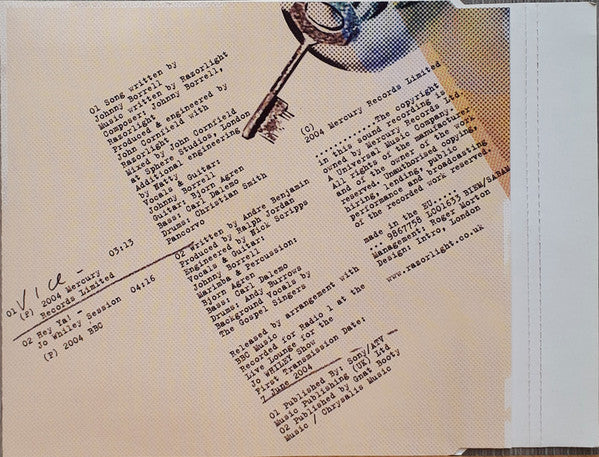 01 Vice -
(P) 2004 Mercury 03:13
Records Limited
02 Hey Ya! -
Jo Whiley Session 04:16
(P) 2004 BBC
01 Song written by
Johnny Borrell
Music written by Razorlight
Composer: Johnny Borrell,
Razorlight
Produced & engineered by
John Cornfield with
Razorlight
Mixed by John Cornfield
at Sphere Studios, London
Additional engineering
by Batty
Vocals & Guitar:
Johnny Borrell
Guitar: Bjorn Agren
Bass: Carl Dalemo
Drums: Christian Smith
Pancorvo
02 Written by Andre Benjamin
Produced by Ralph Jordan
Engineered by Nick Scripps
Vocals & Guitar:
Johnny Borrell
Marimba & Percussion:
Bjorn Agren
Bass: Carl Dalemo
Drums: Andy Burrows
Background Vocals by
The Gospel Singers
Released by arrangement with
BBC Music
Recorded for Radio 1 at the
Live Lounge for the
Jo WHILEY Show
First Transmission Date:
7 June 2004
01 Published By: Sony/ATV
Music Publishing (UK) Ltd
02 Published by Gnat Booty
Music / Chrysalis Music
(C)
2004 Mercury Records Limited
............The copyright
in this sound recording is
owned by Mercury Records Ltd.
A Universal Music Company.
All rights of the manufacturer
and of the owner of the work
reserved. Unauthorised copying,
hiring, lending, public
performance and broadcasting
of the recorded work reserved
made in the EU.....
9867758 LC01633 BIEM/SABAM
Management: Roger Morton
Design: Intro, London
www.razorlight.co.uk